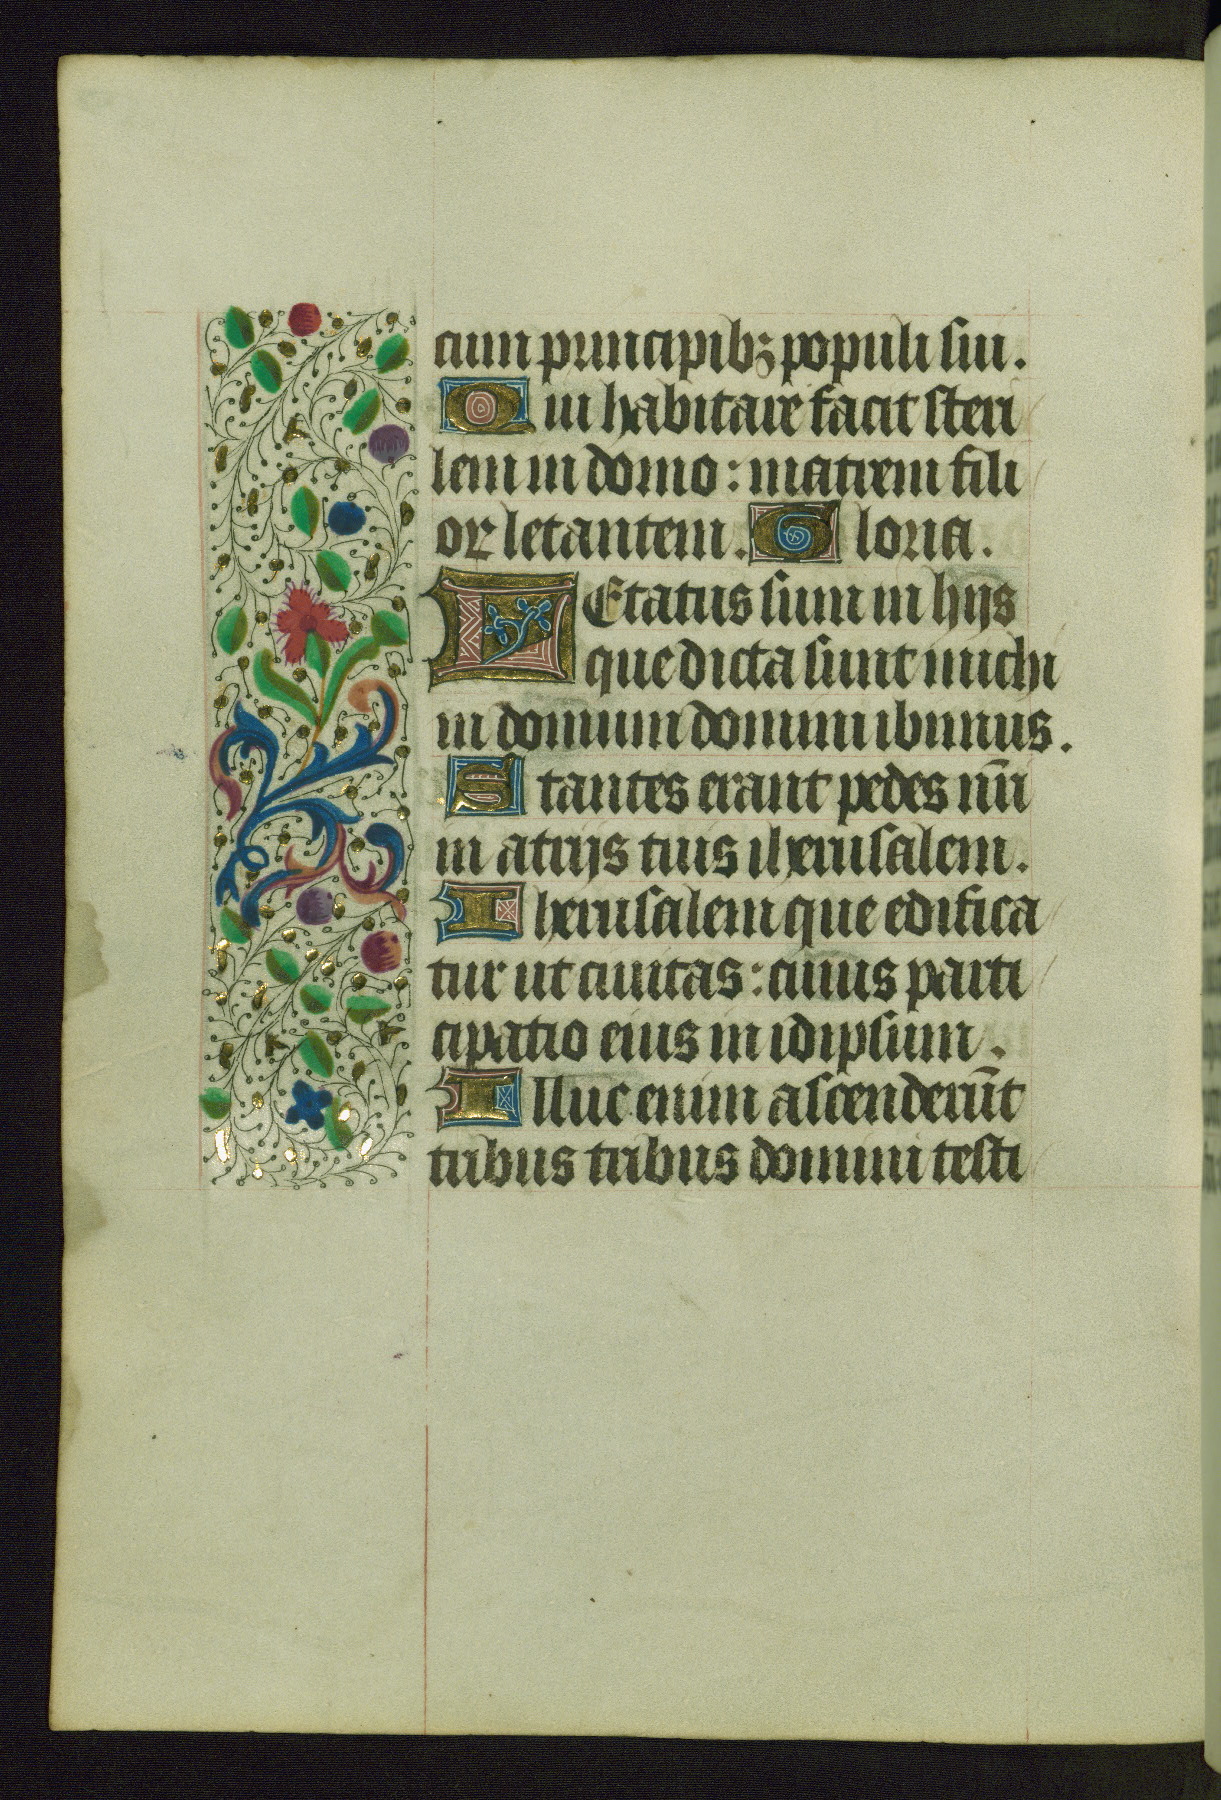 cum principibꝫ populi sui.
Qui habitare facit steri
lem in domo: matrem fili
oꝝ letantem. Gloria.
LEtatus sum in hijs
que dicta sunt michi
in domum domini ibimus.
Stantes erant pedes nr̄i
in atrijs tuis iherusalem.
Iherusalem que edifica
tur ut ciuitas: cuius parti
cipatio eius in idipsum.
Illuc enim ascenderūt
tribus tribus domini testi